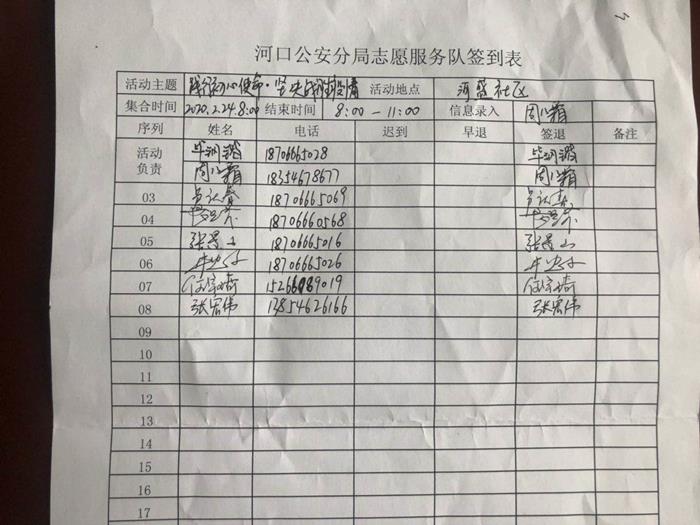 河口公安分局志愿服务队签到表
活动主题 践行初心使命·坚决战胜疫情 活动地点 河盛社区
集合时间 2020.2.24.8:00 结束时间 8:00-11:00 信息录入 周小霜
序列 姓名 电话 迟到 早退 签退 备注
活动负责 18706665028
周小霜 18354678677 周小霜
03 18706665069
04 18706660568
05 张景山 18706665016 张景山
06 18706665026
07 15266989019
08 张宏伟 13854626166 张宏伟
09
10
11
12
13
14
15
16
17